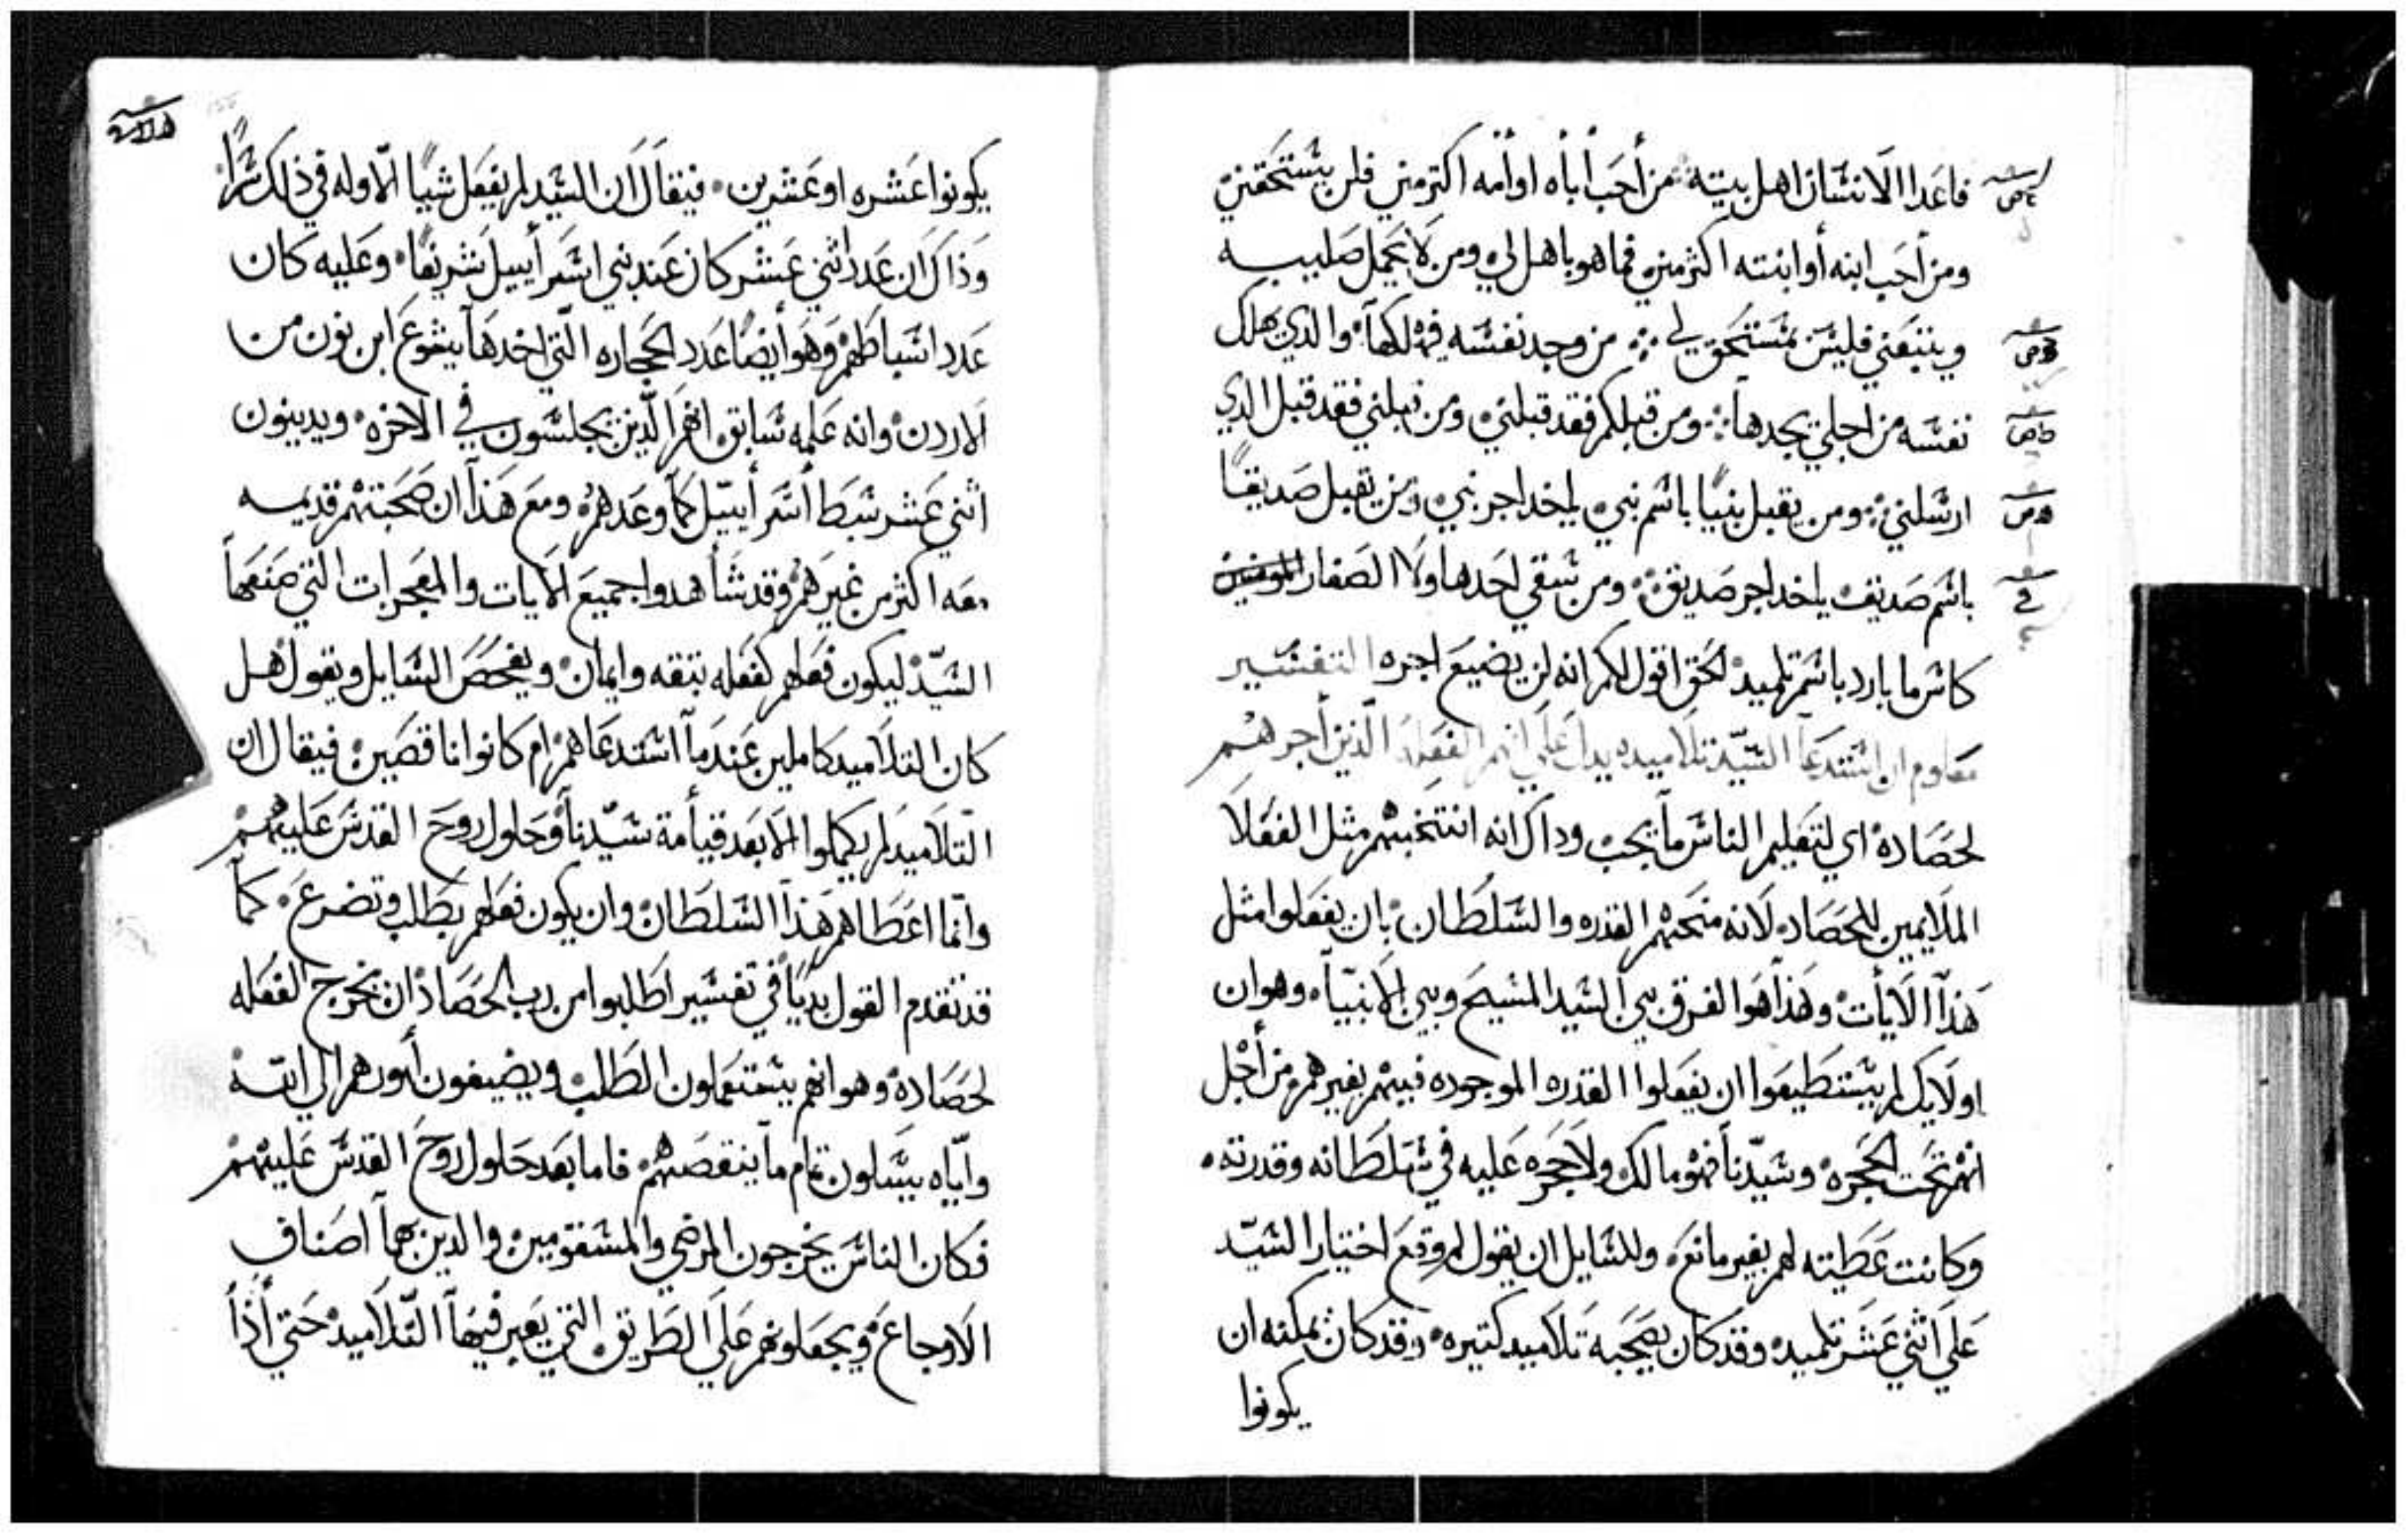 فاعدا الانسان اهل بيته من أحب أباه او أمه اكثر مني فلن يستحقني
ومن أحب ابنه أو ابنته اكثر مني فما هو باهل لي ومن لا يحمل صليبه
ويتبعني فليس بمستحق لي من وجد نفسه فيهلكها والذي يهلك
نفسه من اجلي يجدها ومن قبلكم فقد قبلني ومن قبلني فقد قبل الذي
ارسلني ومن يقبل نبيًا باسم نبي ياخد اجر نبي ومن يقبل صديقًا
باسم صديق ياخد اجر صديق ومن سقي احد هاولا الصغار
كاس ما بارد باسم تلميد لحق اقول لكم انه لن يضيع اجره التفسير
معلوم ان استدعا السيّد تلاميده يدل علي انهم الفعله الذين أجرهم
لحصاده اي لتعليم الناس ما يجب وداك انه انتخبهم مثل الفعلا
الملايمين للحصاد لانه منحهم القدره والسلطان بان يفعلوا مثل
هذا الايات وهذا هوا الفرق بين السيد المسيح وبين الانبيا وهو ان
اولايك لم يستطيعوا ان يفعلوا القدره الموجوده فيهم بغيرهم من أجل
انهم تحت الحجره وسيّدنا فهو مالك ولا حجره عليه في سلطانه وقدرته
وكانت عطيته لهم بغير مانع وللسايل ان يقول لم وقع اختيار السيّد
علي اثني عشر تلميد وقد كان يصحبه تلاميد كتيره وقد كان يمكنه ان
يكونوا
يكونوا عشره او عشرين فيقال ان السيد لم يفعل شيًا الّا وله في ذلك سرًا
وذاك ان عدد اثني عشر كان عند بني اسرأييل شريفًا وعليه كان
عدد اسباطهم وهو أيضًا عدد الحجاره التي اخدها يشوع ابن نون من
الاردن وانه علمه سابق انهم الذين يجلسون في الاخره ويدينون
اثني عشر سبط أسرأييل كما وعدهم ومع هذا ان صحبتهم قديمه
معه اكثر من غيرهم وقد شاهدوا جميع الايات والمعجزات التي صنعها
السيّد ليكون فعلهم كفعله بثقه وايمان ويفحص السايل ويقول هل
كان التلاميد كاملين عندما استدعاهم ام كانوا ناقصين فيقال ان
التلاميد لم يكملوا الا بعد قيامة سيّدنا وحلول روح القدس عليهم
وانما اعطاهم هذا السلطان وان يكون فعلهم بطلب وتضرع كما
قد تقدم القول بديًا في تفسير اطلبوا من رب الحصاد ان يخرج الفعله
لحصاده وهو انهم يستعملون الطلب ويضيفون أمورهم الي الله
واياه يسلون تمام ما ينقصهم فاما بعد حلول روح القدس عليهم
فكان الناس يخرجون المرضي والمسقومين والدين بهما اصناف
الاوجاع ويجعلونهم علي الطريق التي يعبر فيها التلاميد حتي أذا